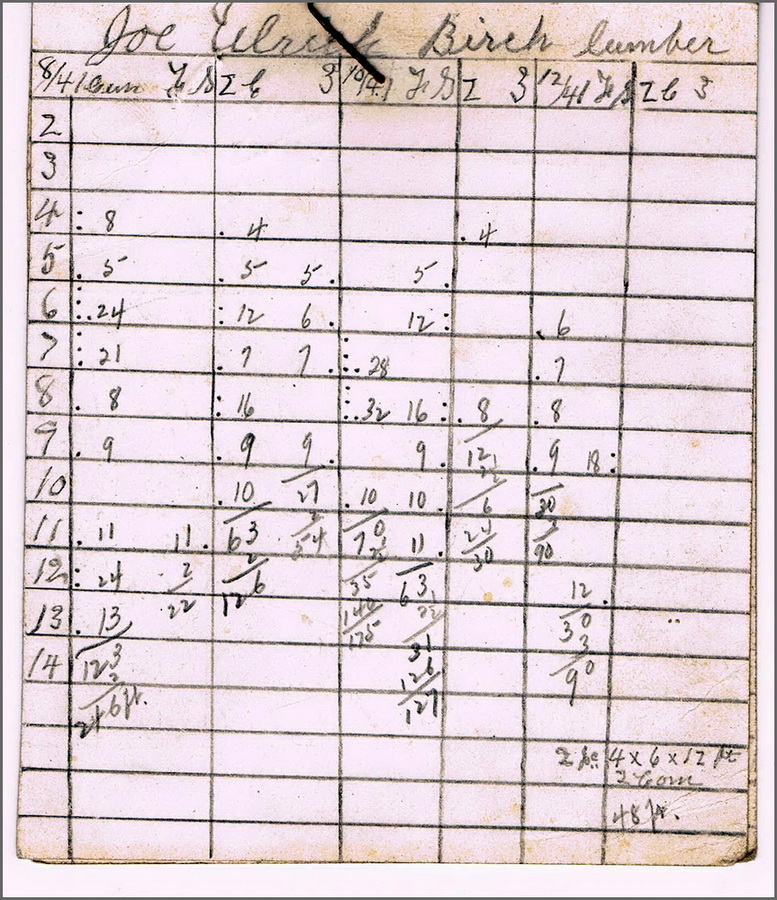 Joe Ulrich Birch lumber
8/41 Com FS 2 C 3 10/41 FS 2 3 12/41 FS 2 C 3
2
3
4 : 8 . 4 . 4
5 . 5 . 5 5 . 5 .
6 :. 24 : 12 6 . 12 : . 6
7 : 21 . 7 7 . :. 28 . 7
8 . 8 : 16 :. 32 16 : . 8 . 8
9 . 9 . 9 9 . 9 . 12 . 9 18 :
10 . 10 27 . 10 10 . 6 30
11 . 11 11 . 63 2 54 70 11 . 24 30 3 90
12 : 24 2 22 2 126 35 63 12 .
13 . 13 140 175 30
14 123 2 31 126 127 3 90
246 ft.
2 pc 4 x 6 x 12 ft
2 Com
48 ft.